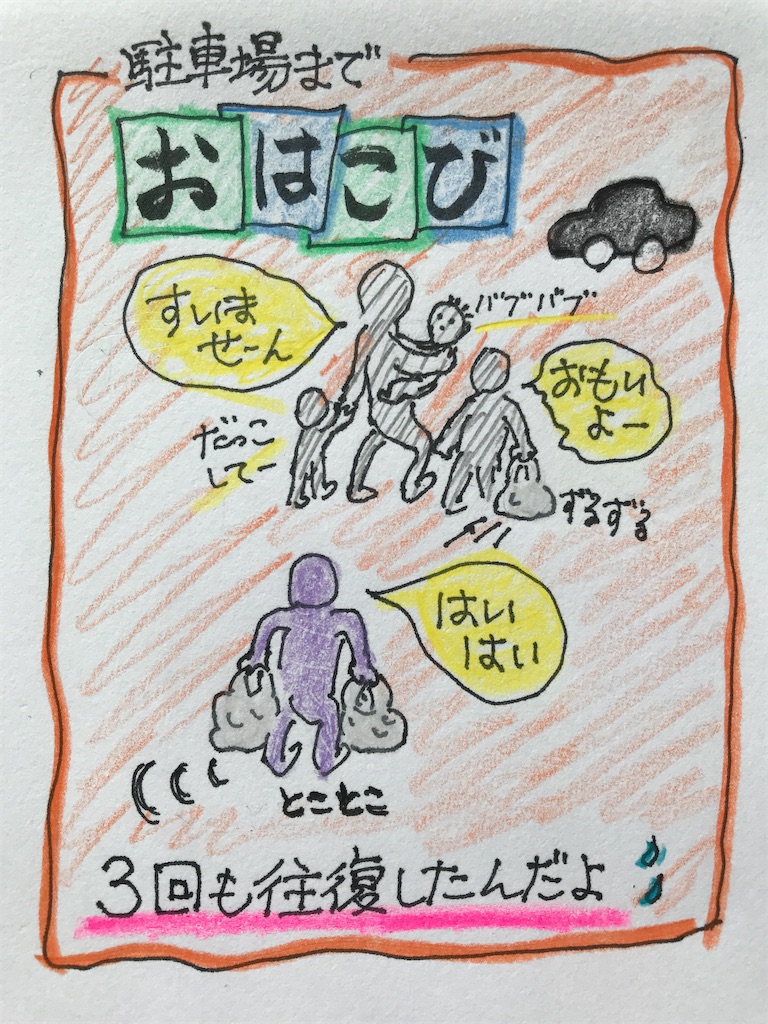 駐車場まで
おはこび
すいま
せーん
バブバブ
おもい
よー
だっこ
してー
ずるずる
はい
はい
とことこ
3回も往復したんだよ